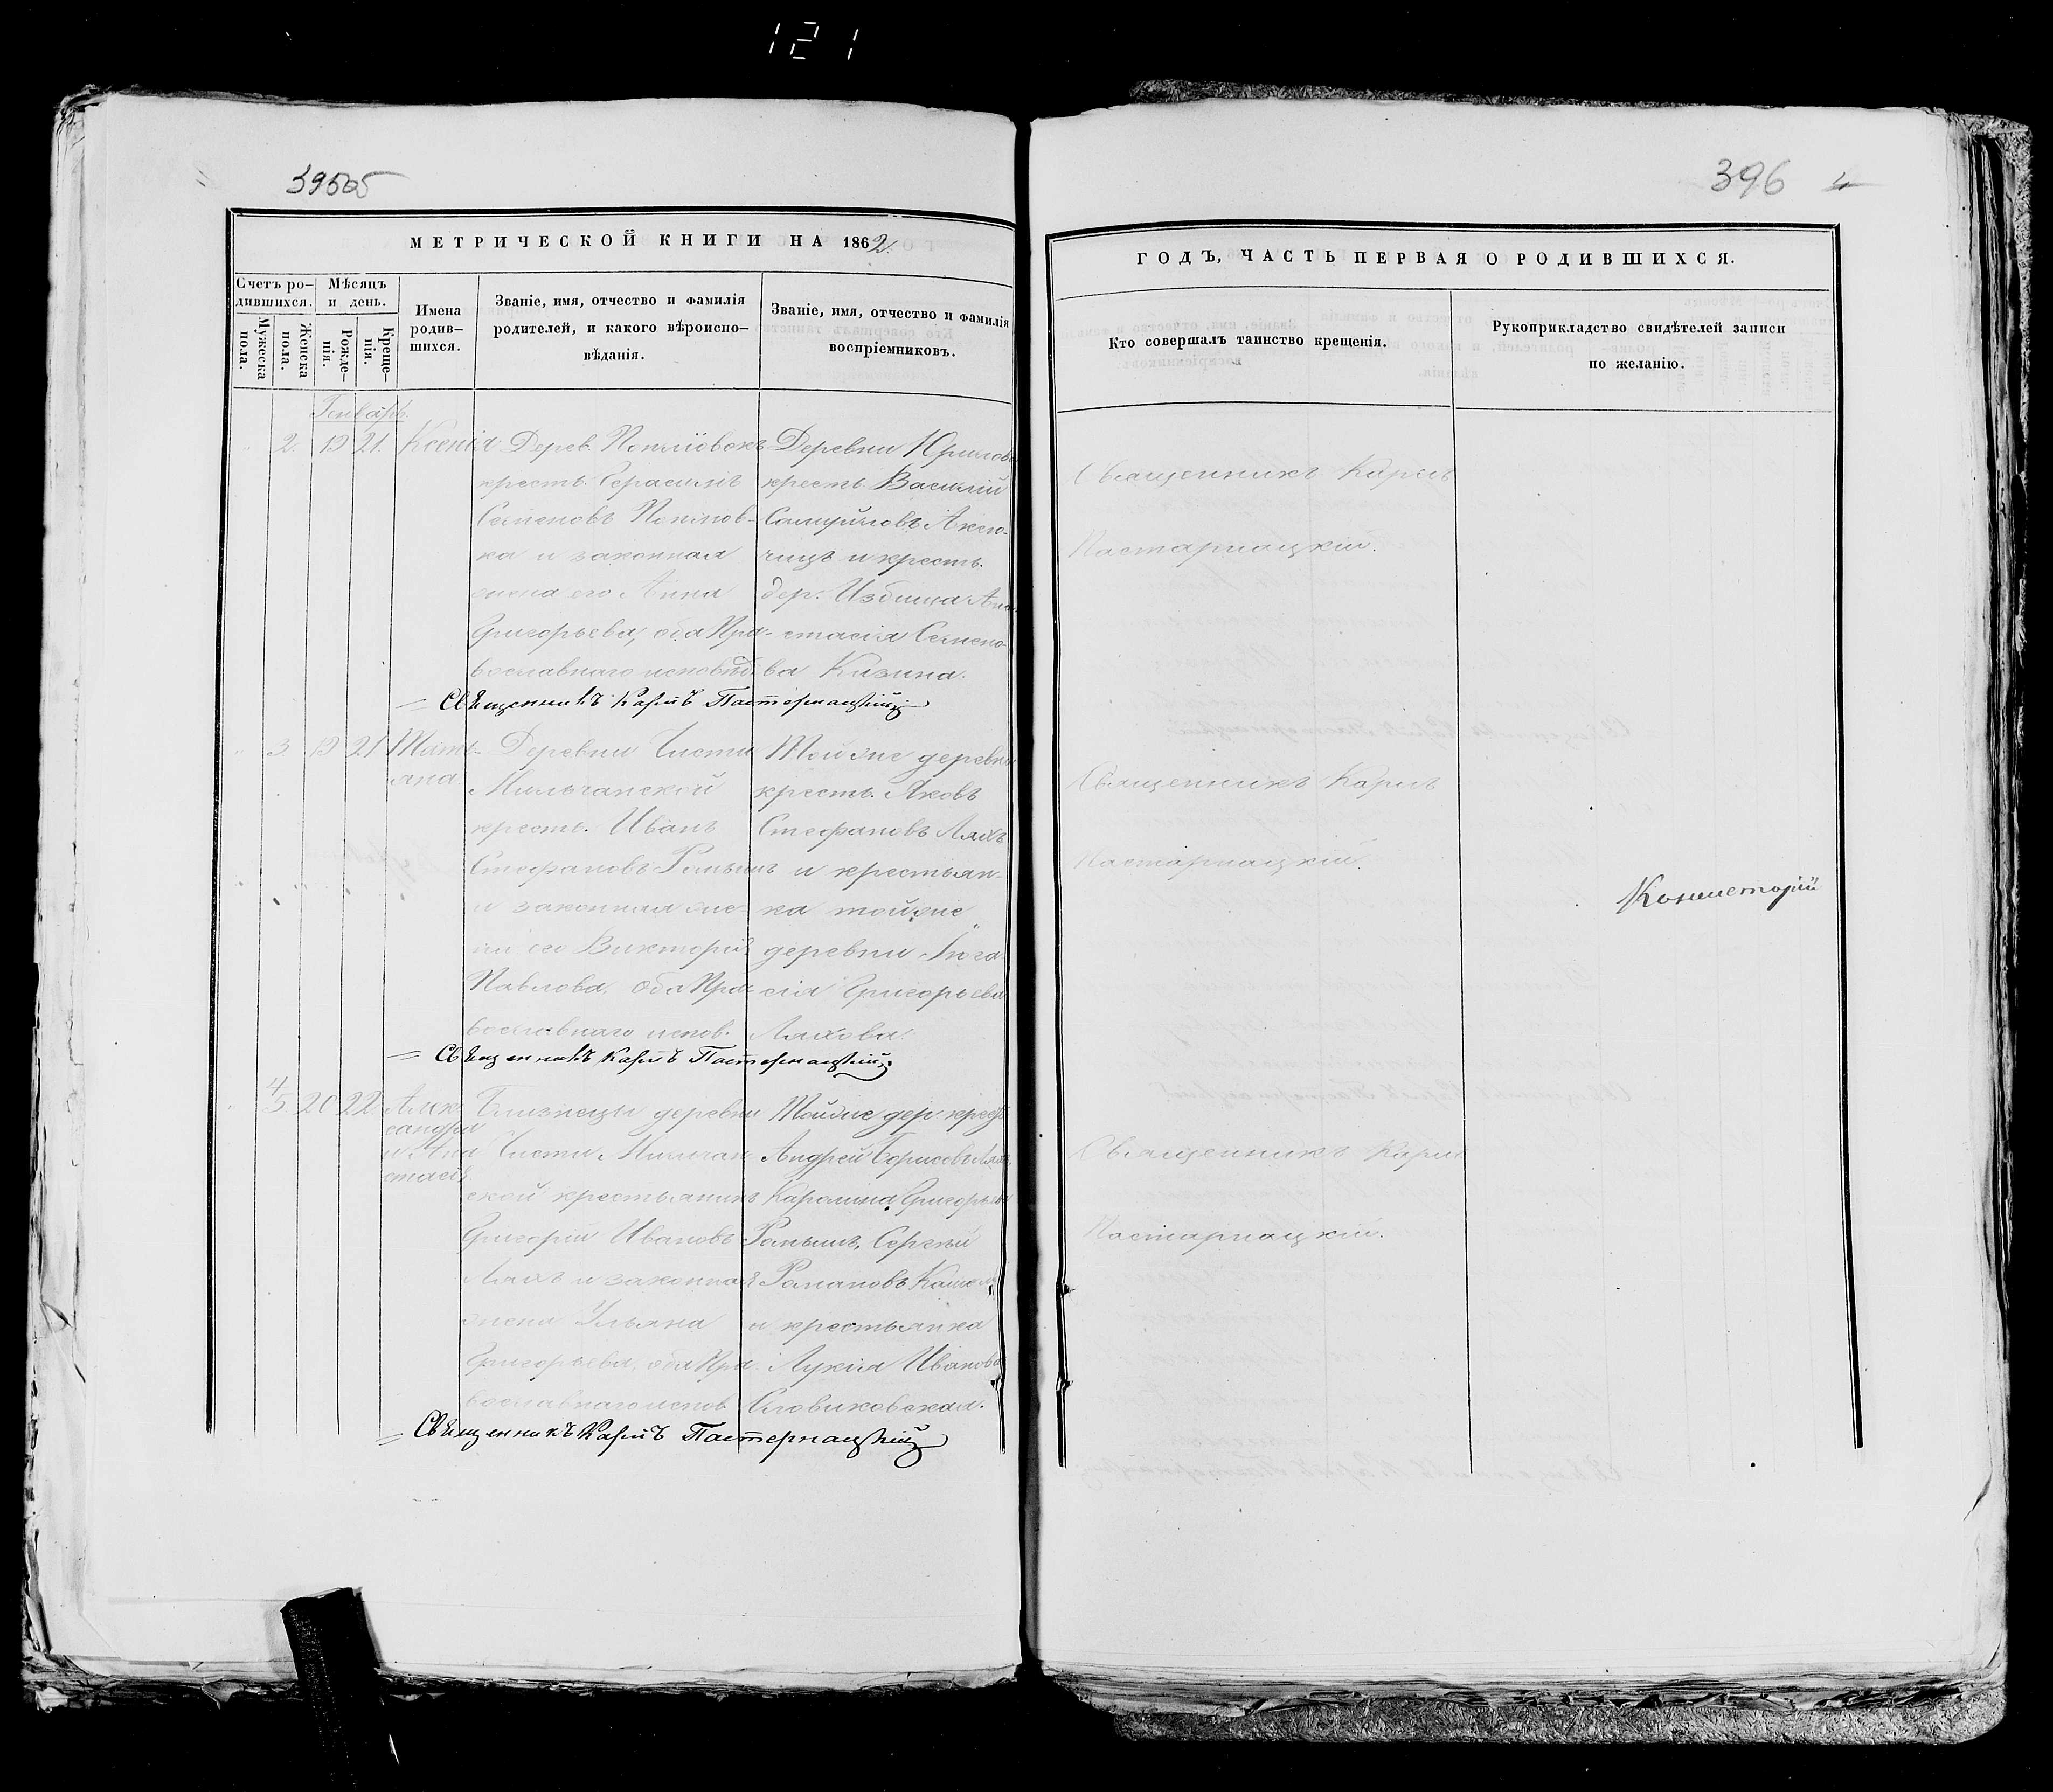 121
396
МЕТРИЧЕСКОЙ КНИГИ НА 1862.
Счетъ ро-
дившихся.
Мѣсяцъ
и день.
Мужеска
пола.
Женска
пола.
Рожде-
нія.
Креще-
нія.
Имена
родив-
шихся.
Званіе, имя, отчество и фамилія
родителей, и какого вѣроиспо-
вѣданія.
Званіе, имя, отчество и фамилія
воспріемниковъ.
Генварь.
2. 19 21. Ксенія
Дерев.
крестъ. Герасимъ
Семеновъ
ка и законная
жена его Анна
Григорьева, оба Пра-
вославнаго исповѣд.
Деревни
крестъ Василій
Самуйловъ Аксю-
чицъ и крестъ.
дер. Избища Ана-
стасія Семено-
ва Казина.
Священникъ Карпъ Пастернацкій
3. 19 21 Тать-
яна
Деревни Чисти
Мильчанской
крестъ. Иванъ
Стефановъ
и законная же-
на его Викторія
Павлова, оба Пра-
вославнаго испов.
Той же деревни
крестъ. Яковъ
Стефановъ Ляхъ
и крестьян-
ка той же
деревни
сія Григорьева
Ляхова.
Священникъ Карпъ Пастернацкій
4
5. 20 22. Алек-
сандра
и Ана
стасія.
Близнецы деревни
Чисти Мильчан
ской крестьянинъ
Григорій Ивановъ
Ляхъ и законная
жена Ульяна
Григорьева, оба Пра-
вославнаго испов
Той же дер крест
Андрей Борисовъ Лях,
Каролина Григорьева
Сергѣй
Романовъ
и крестьянка
Лукія Иванова
Священникъ Карпъ Пастернацкій
ГОДЪ, ЧАСТЬ ПЕРВАЯ О РОДИВШИХСЯ.
Кто совершалъ таинство крещенія.
Рукоприкладство свидѣтелей записи
по желанію.
Священникъ Карпъ
Пастарнацкій.
Священникъ Карпъ
Пастарнацкій.
Священникъ Карпъ
Пастарнацкій.